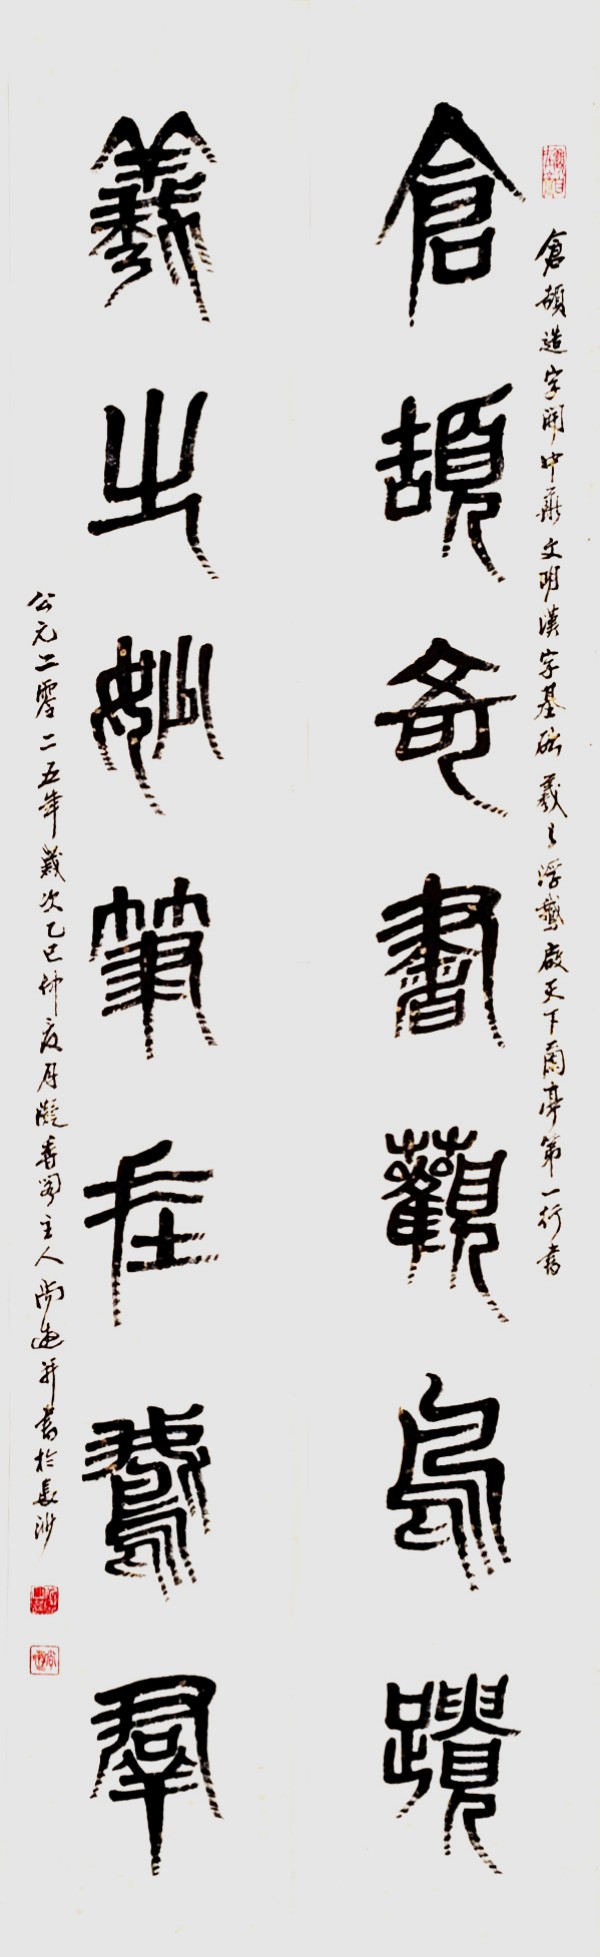 倉頡造字開中華文明漢字基礎羲之浮鵞啟天下蘭亭第一行書
倉頡奇書觀鳥蹟
羲之妙筆在鵞群
公元二零二五年歲次乙巳仲夏月凝香閣主人尚迪并書於長沙